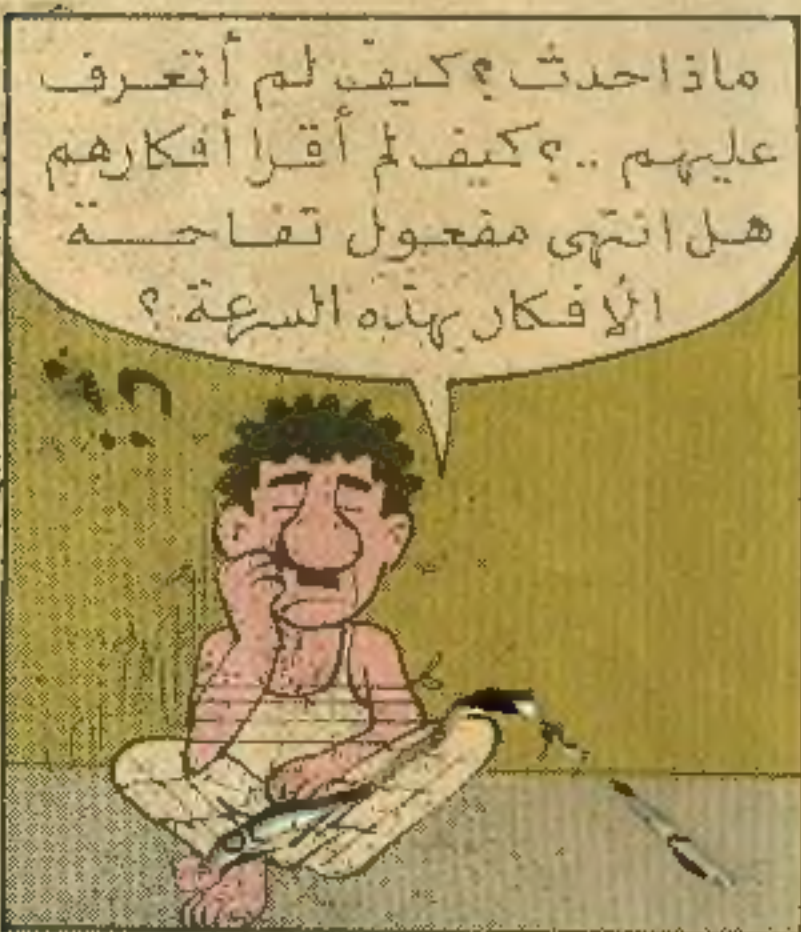 ماذا حدث؟ كيف لم أتعرف
عليهم ..؟ كيف لم أقرا أفكارهم
هل انتهى مفعول تفاحة
الأفكار بهذه السرعة؟